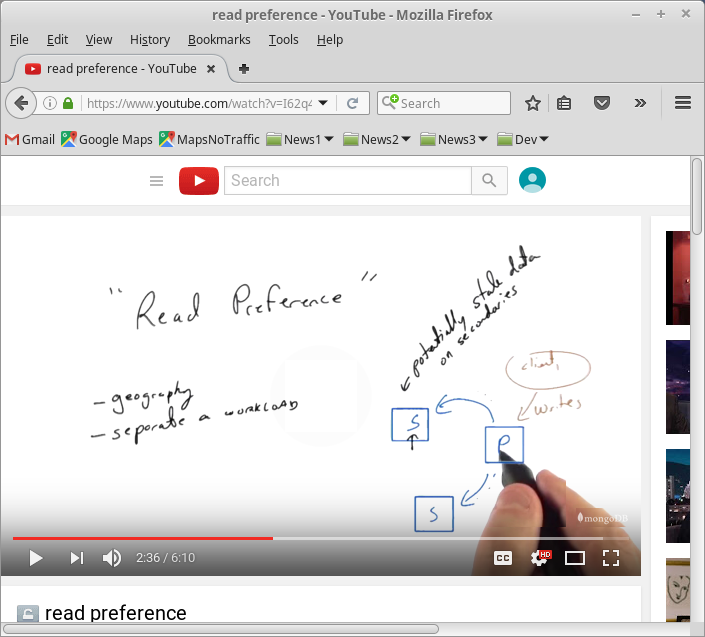 read preference - YouTube - Mozilla Firefox
File Edit View History Bookmarks Tools Help
read preference - YouTube
https://www.youtube.com/watch?v=I62q4
Search
Gmail Google Maps MapsNoTraffic News1 News2 News3 Dev
Search
"Read Preference"
potentially stale data
on secondaries
- geography
- separate a workload
client
writes
S
P
S
mongoDB
2:36 / 6:10
CC
HD
read preference